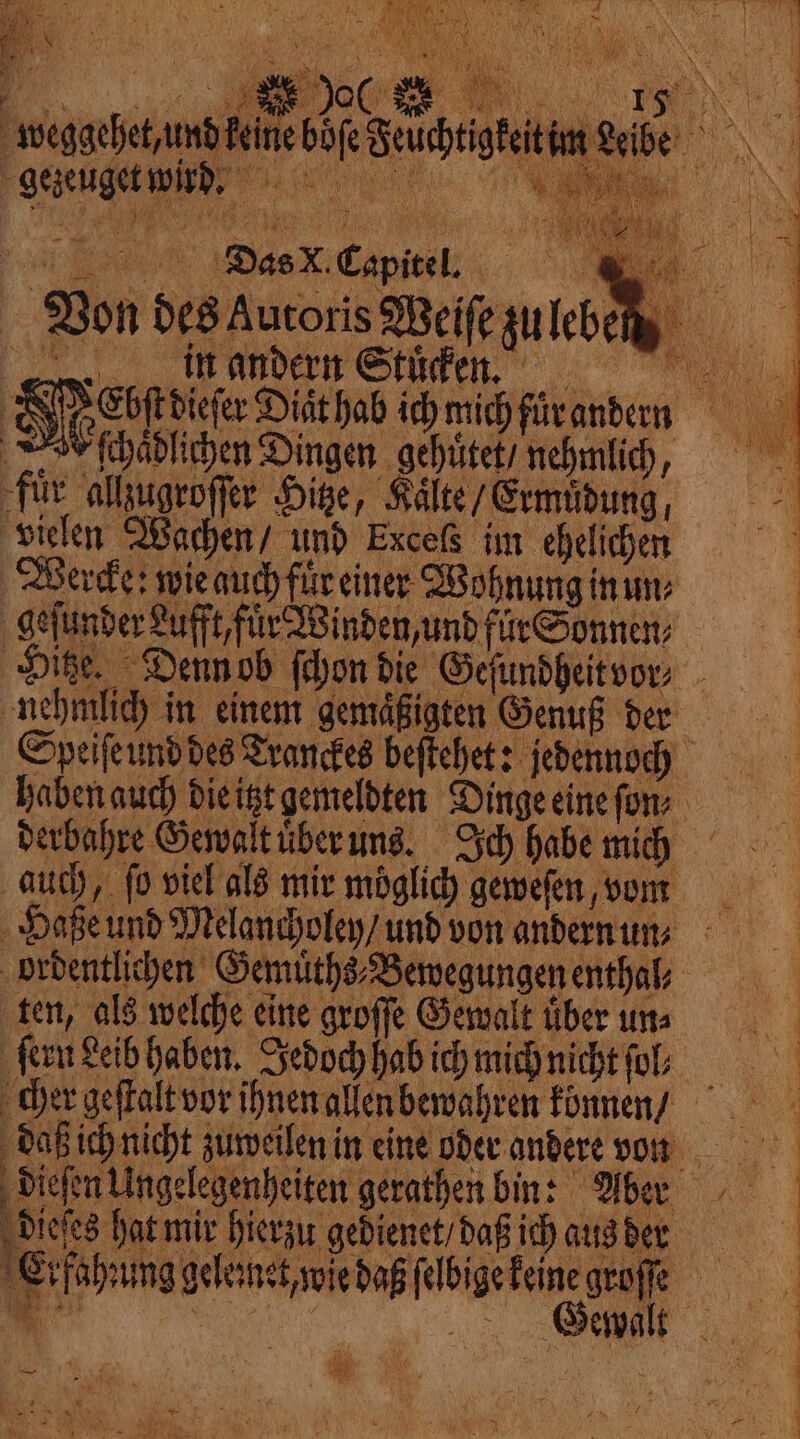 )o( 15
weggehet, und keine boͤſe Feuchtigkeit im Leibe
gezeuget wird.
Das X. Capitel.
Von des Autoris Weiſe zu leben
in andern Stuͤcken.
NEbſt dieſer Diaͤt hab ich mich fuͤr andern
ſchaͤdlichen Dingen gehuͤtet/ nehmlich,
fuͤr allzugroſſer Hitze, Kaͤlte / Ermuͤdung,
vielen Wachen / und Exceſs im ehelichen
Wercke: wie auch fuͤr einer Wohnung in un⸗
geſunder Lufft, fuͤr Winden, und fuͤr Sonnen⸗
Hitze. Denn ob ſchon die Geſundheit vor⸗
nehmlich in einem gemaͤßigten Genuß der
Speiſe und des Tranckes beſtehet: jedennoch
haben auch die itzt gemeldten Dinge eine ſon⸗
derbahre Gewalt uͤber uns. Ich habe mich
auch, ſo viel als mir moͤglich geweſen, vom
Haße und Melancholey/ und von andern un⸗
ordentlichen Gemuͤths⸗Bewegungen enthal⸗
ten, als welche eine groſſe Gewalt uͤber un⸗
ſern Leib haben. Jedoch hab ich mich nicht ſol⸗
cher geſtalt vor ihnen allen bewahren koͤnnen/
daß ich nicht zuweilen in eine oder andere von
dieſen Ungelegenheiten gerathen bin: Aber
dieſes hat mir hierzu gedienet/ daß ich aus der
Erfahrung gelernet, wie daß ſelbige keine groſſe
Gewalt